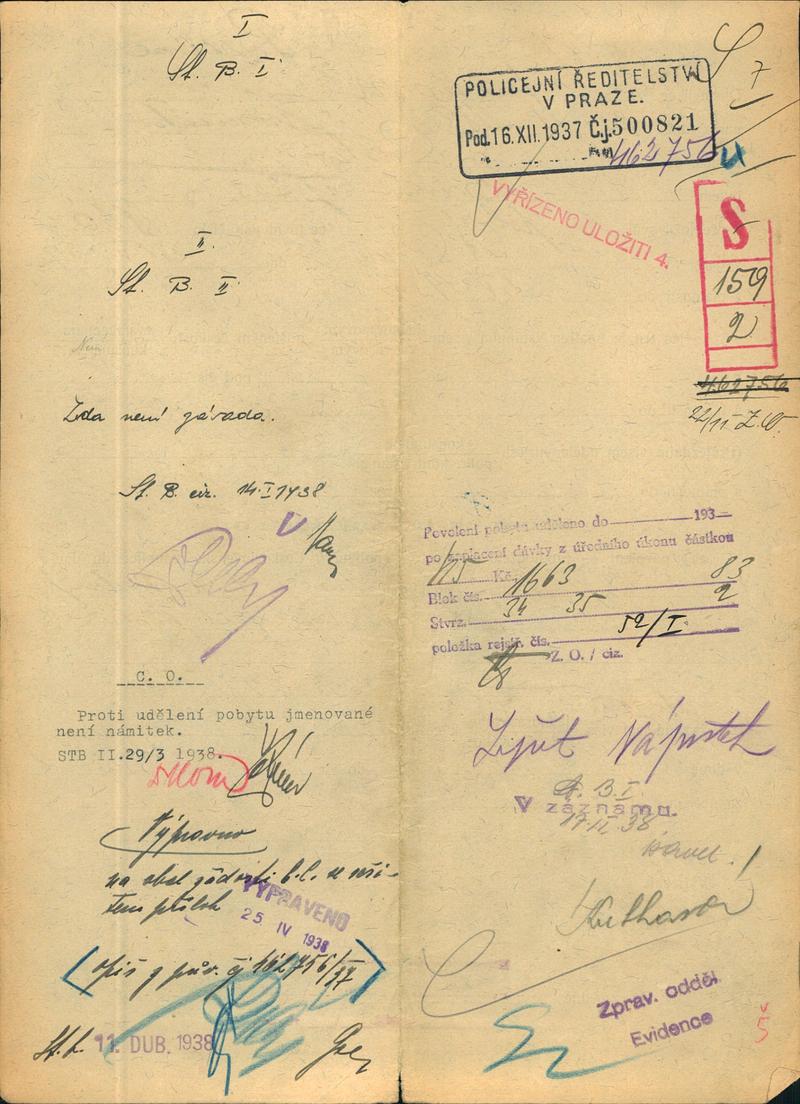 I
St. B. I
II.
St. B. II
Zda není závada.
St. B. ciz. 14.I 1938
V
C. O.
Proti udělení pobytu jmenované
není námitek.
STB II.29/3 1938.
Výpravno
na obal žádosti b.l. se vší-
tem příloh
VYPRAVENO
25 IV 1938
opis z pův. čj 462756/37
St. b. 11. DUB. 1938
7
POLICEJNÍ ŘEDITELSTVÍ
V PRAZE.
Pod. 16.XII.1937 Č.j. 500821
462756
VYŘÍZENO ULOŽITI 4.
S
159
2
462756
22/11
Povolení pobytu uděleno do 193
po zaplacení dávky z úředního úkonu částkou
Kč
Blok čís. 1663 83
Stvrz. 34 35 2
položka rejstř. čís. 52/I
Z. O. / ciz.
Zjišť Náprstek
St. B. I
V záznamu.
17.II.38
Zprav. odděl
Evidence
5